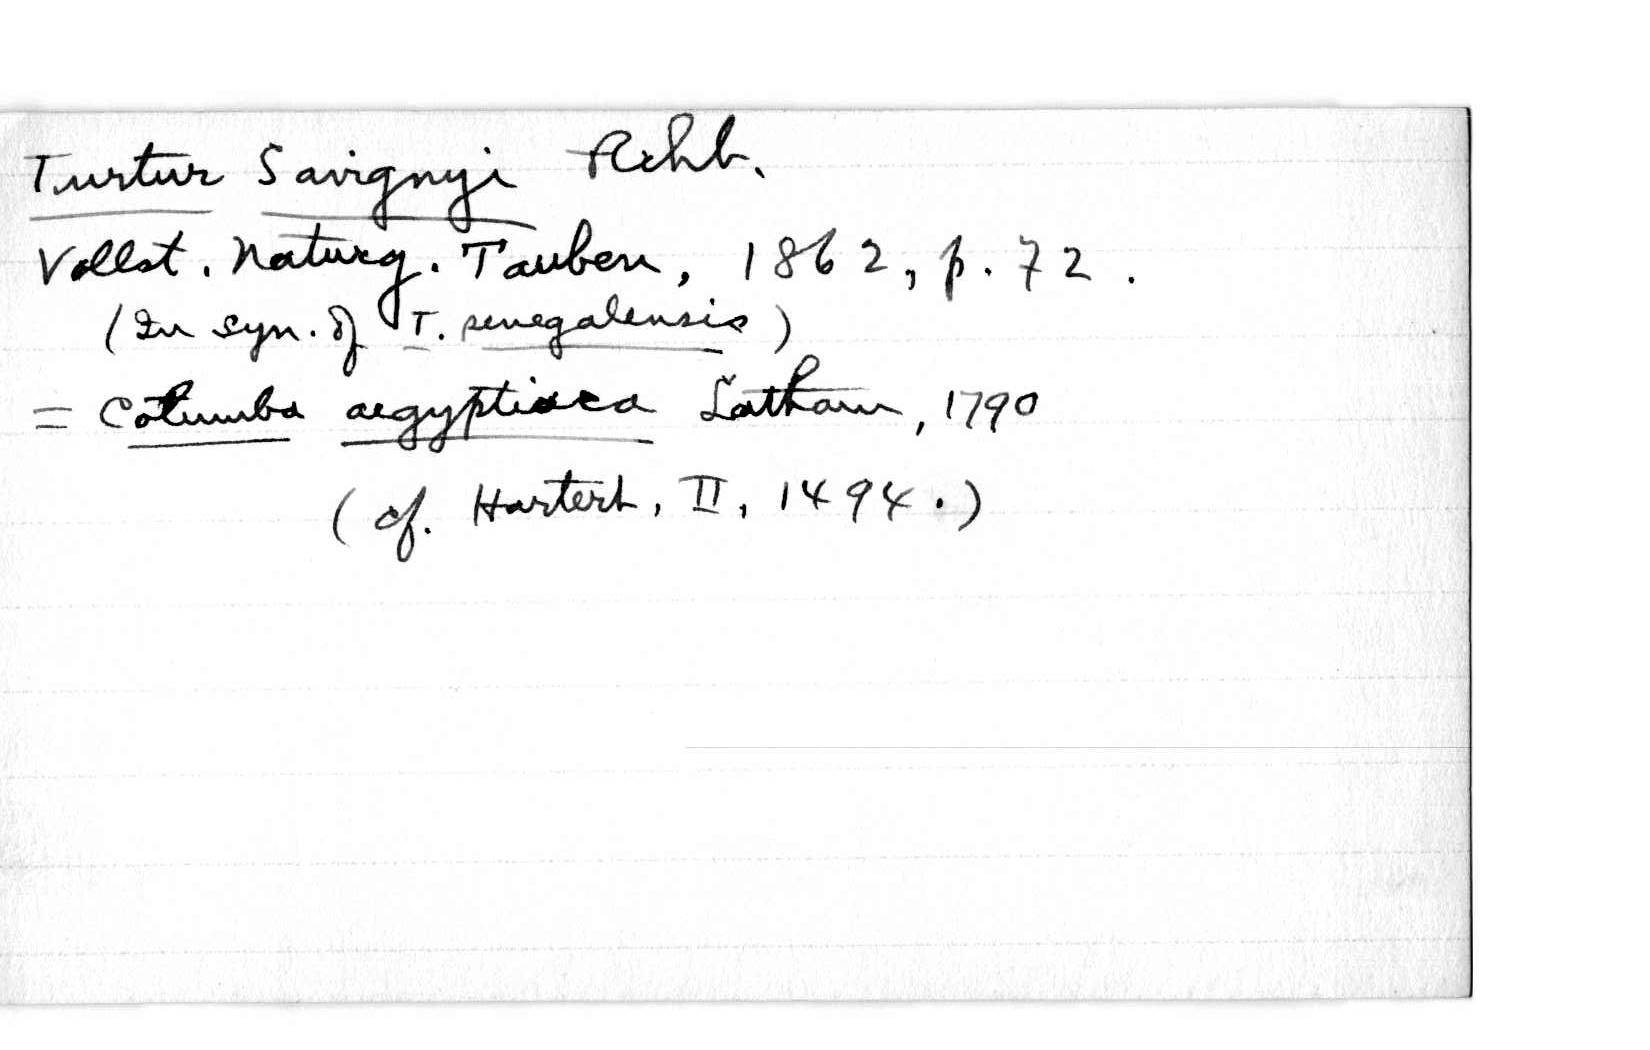 Turtur Savignyi Rchb.
Vollst. Naturg. Tauben, 1862, p. 72.
(In syn. of T. senegalensis)
= Columba aegyptiaca Latham, 1790
(cf. Hartert, II, 1494.)